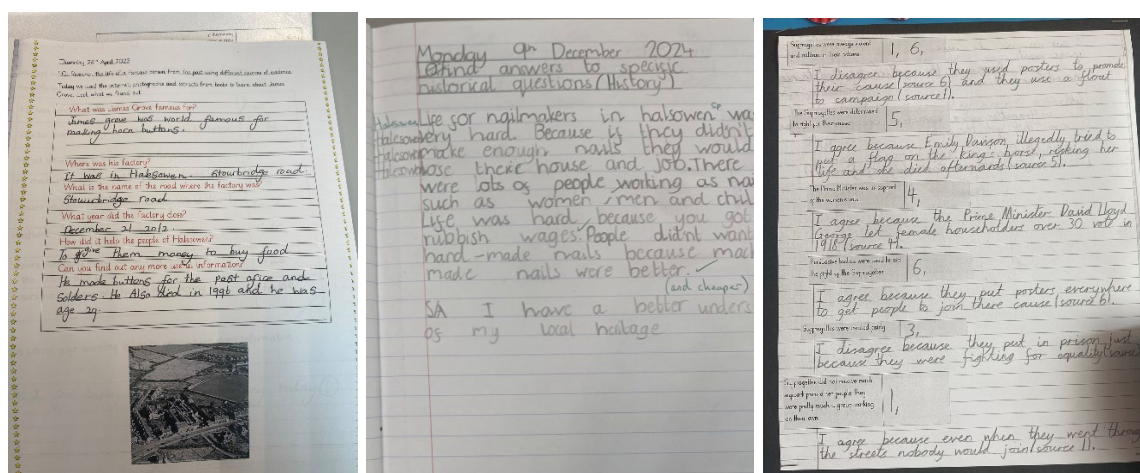 Thursday 28th April 2022
Today we used the internet, photographs and extracts from books to learn about James
Grove. Look what we found out.
What was James Grove famous for?
James grove was world famous for
making horn buttons.
Where was his factory?
It was in Halesowen Stourbridge road.
What is the name of the road where the factory was?
Stourbridge road
What year did the factory close?
December 21 2012.
How did it help the people of Halesowen?
To give them money to buy food
Can you find out any more useful information?
He made buttons for the post ofice and
solders. He Also died in 1996 and he was
age 29.
Monday 9th December 2024
LO find answers to specific
historical questions (History)
Life for nailmakers in halsowen was
very hard. Because if they didn't
make enough nails they would
lose their house and job. There
were lots of people working as na
such as women, men and chil
Life was hard, because you got
rubbish wages. People didn't want
hand-made nails because mac
made nails were better.
(and cheaper)
sp
Halesowen
Halesowen
Halesowen
Halesowen
SA I have a better unders
of my local heritage
Suffragettes were always violent
and militant in their actions
1, 6,
I disagree because they used posters to promote
their cause (source 6) and they use a float
to campaign (source 1).
The Suffragettes were determined
5,
I agree because Emily Davison, illegedly tried to
put a flag on the kings horse, risking her
life and she died afterwards (source 5).
The Prime Minister was in support
of the women's vote
4,
I agree because the Prime Minister David Lloyd
George let female householders over 30 vote in
1918 (source 4).
6,
I agree because they put posters everywhere
to get people to join there cause (source 6).
Suffragettes were treated fairly
3,
I disagree because they put in prison just
because they were fighting for equality (source
Suffragettes did not receive much
support from other people they
were pretty much a group working
on their own
1,
I agree because even when they went throu
the streets nobody would join (source 1).